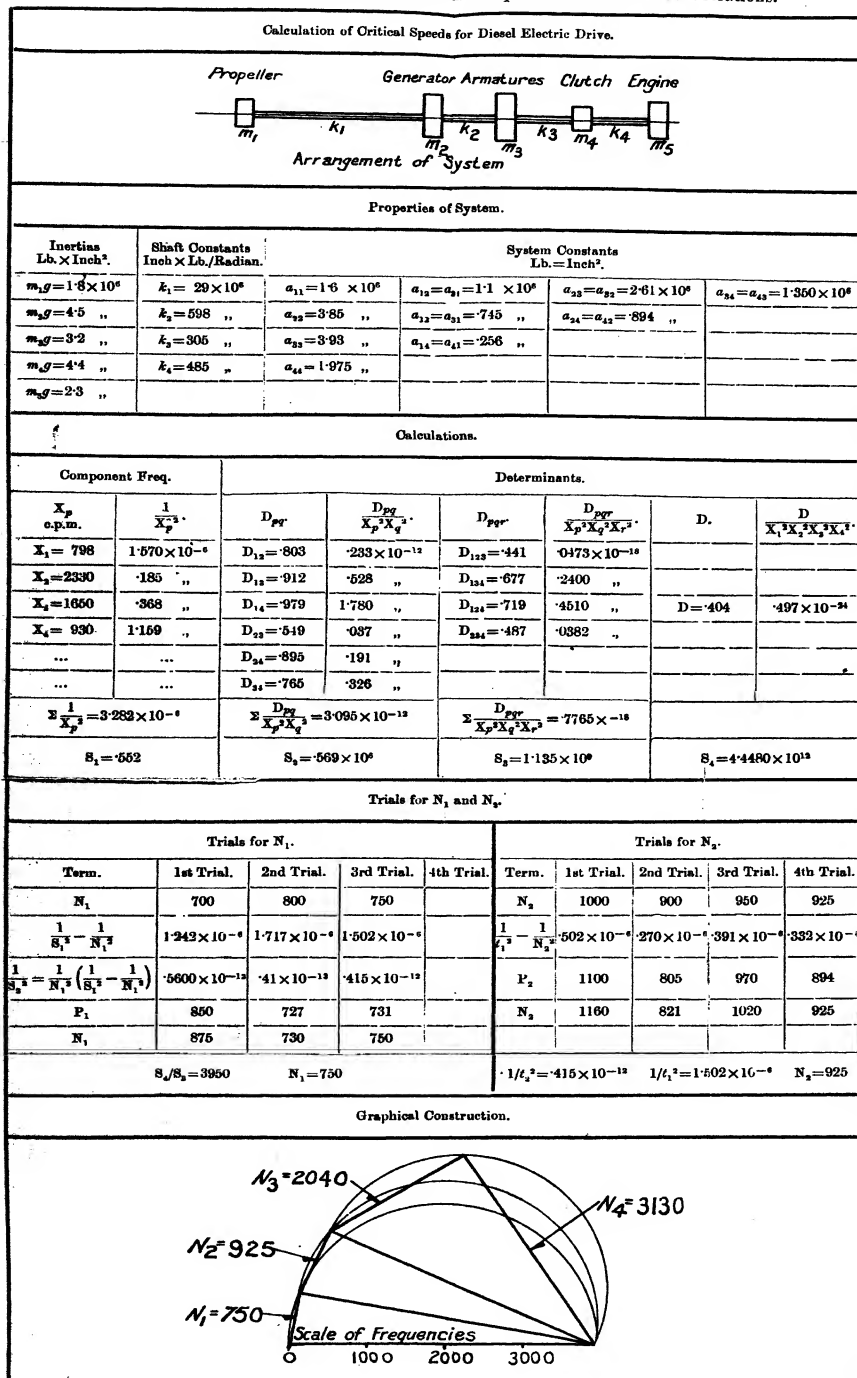 Calculation of Critical Speeds for Diesel Electric Drive.
Propeller Generator Armatures Clutch Engine
m₁ k₁ m₂ k₂ m₃ k₃ m₄ k₄ m₅
Arrangement of System
Properties of System.
Inertias Lb. × Inch². Shaft Constants Inch × Lb./Radian. System Constants Lb.=Inch².
m₁g=1·8×10⁶ k₁= 29×10⁶ a₁₁=1·6 ×10⁶ a₁₂=a₂₁=1·1 ×10⁶ a₂₃=a₃₂=2·61×10⁶ a₃₄=a₄₃=1·350×10⁶
m₂g=4·5 ,, k₂=598 ,, a₂₂=3·85 ,, a₁₃=a₃₁=·745 ,, a₂₄=a₄₂=·894 ,,
m₃g=3·2 ,, k₃=305 ,, a₃₃=3·93 ,, a₁₄=a₄₁=·256 ,,
m₄g=4·4 ,, k₄=485 ,, a₄₄=1·975 ,,
m₅g=2·3 ,,
Calculations.
Component Freq. Determinants.
Xₚ c.p.m. 1/Xₚ². D_pq. D_pq/X_p²X_q². D_pqr. D_pqr/X_p²X_q²X_r². D. D/X₁²X₂²X₃²X₄².
X₁= 798 1·570×10⁻⁶ D₁₂=·803 ·233×10⁻¹² D₁₂₃=·441 ·0473×10⁻¹⁸
X₂=2330 ·185 ,, D₁₃=·912 ·528 ,, D₁₃₄=·677 ·2400 ,,
X₃=1650 ·368 ,, D₁₄=·979 1·780 ,, D₁₂₄=·719 ·4510 ,, D=·404 ·497×10⁻²⁴
X₄= 930 1·159 ,, D₂₃=·549 ·037 ,, D₂₃₄=·487 ·0382 ,,
... ... D₂₄=·895 ·191 ,,
... ... D₃₄=·765 ·326 ,,
Σ 1/X_p²=3·282×10⁻⁶ Σ D_pq/X_p²X_q²=3·095×10⁻¹² Σ D_pqr/X_p²X_q²X_r²=·7765×⁻¹⁸
S₁=·552 S₂=·569×10⁶ S₃=1·135×10⁹ S₄=4·4480×10¹²
Trials for N₁ and N₂.
Trials for N₁. Trials for N₂.
Term. 1st Trial. 2nd Trial. 3rd Trial. 4th Trial. Term. 1st Trial. 2nd Trial. 3rd Trial. 4th Trial.
N₁ 700 800 750 N₂ 1000 900 950 925
1/S₁² − 1/N₁² 1·242×10⁻⁶ 1·717×10⁻⁶ 1·502×10⁻⁶ 1/t₁² − 1/N₂² ·502×10⁻⁶ ·270×10⁻⁶ ·391×10⁻⁶ ·332×10⁻⁶
1/S₂² = 1/N₁² (1/S₁² − 1/N₁²) ·5600×10⁻¹² ·41×10⁻¹² ·415×10⁻¹² P₂ 1100 805 970 894
P₁ 850 727 731 N₂ 1160 821 1020 925
N₁ 875 730 750
S₄/S₃=3950 N₁=750 1/t₂²=·415×10⁻¹² 1/t₁²=1·502×10⁻⁶ N₂=925
Graphical Construction.
N₃=2040
N₄=3130
N₂=925
N₁=750
Scale of Frequencies
0 1000 2000 3000